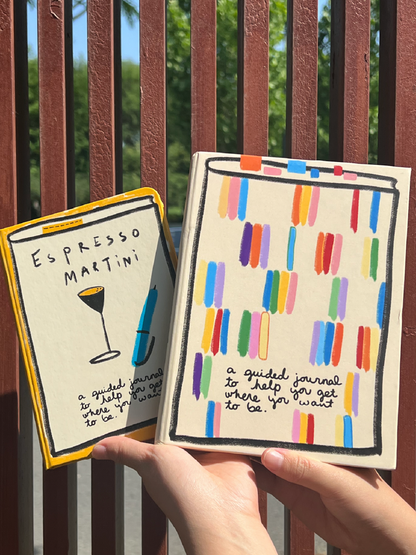 ESPRESSO
MARTINI
a guided journal
to help you get
where you want
to be.
a guided journal
to help you get
where you want
to be.